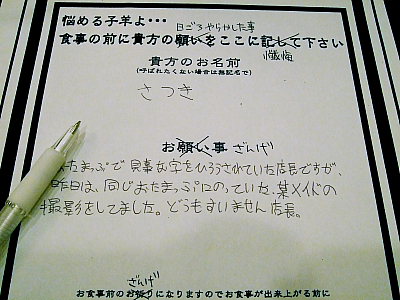 悩める子羊よ・・・ 日ごろやらかした事
食事の前に貴方の願いをここに記して下さい
懺悔
貴方のお名前
(呼ばれたくない場合は無記名で)
さつき
お願い事 ざんげ
おたまっぷで見事な字をひろうされていた店長ですが、
昨日は、同じおたまっぷにのっていた、某メイドの
撮影をしてました。どうもすいません店長。
ざんげ
お食事前のお祈りになりますのでお食事が出来上がる前に